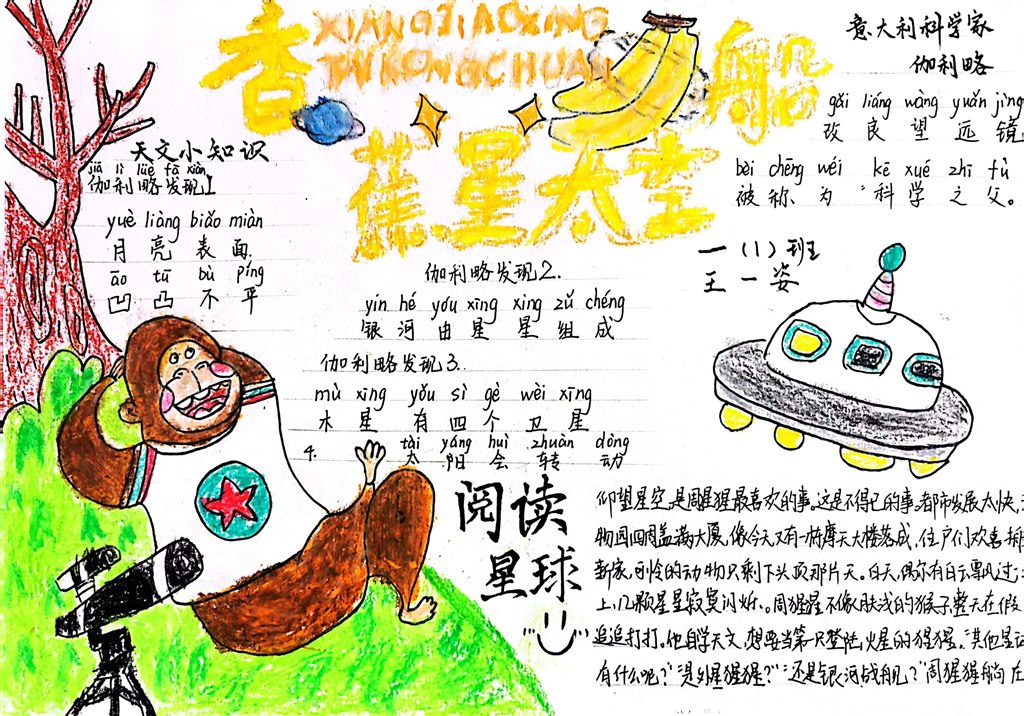 XIANGJIAOXING
TAIKONGCHUAN
香 船
蕉星太空
意大利科学家
伽利略
gǎi liáng wàng yuǎn jìng
改良望远镜
bèi chēng wéi kē xué zhī fù
被称为“科学之父。
一（1）班
王一姿
天文小知识
jiā lì lüè fā xiàn
伽利略发现1
yuè liàng biǎo miàn
月亮表面.
āo tū bù píng
凹凸不平
伽利略发现2.
yín hé yóu xīng xing zǔ chéng
银河由星星组成
伽利略发现3.
mù xīng yǒu sì gè wèi xīng
木星有四个卫星
tài yáng huì zhuàn dòng
4. 太阳会转动
阅读
星球
仰望星空,是周猩猩最喜欢的事。这是不得已的事。都市发展太快,
物园四周盖满大厦,像今天又有一栋摩天大楼落成,住户们欢喜搬
新家,可怜的动物只剩下头顶那片天。白天,偶尔有白云飘过;
上,几颗星星寂寞闪烁。周猩猩不像肤浅的猴子,整天在假
追追打打,他自学天文,想要当第一只登陆火星的猩猩。“其他星
有什么呢?”“是外星猩猩?”“还是银河战舰?”周猩猩躺在